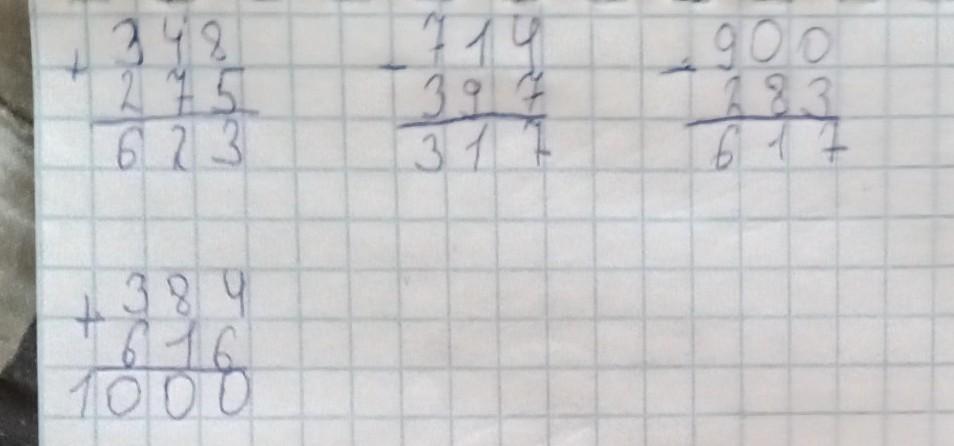 + 348
275
623
- 714
397
317
- 900
283
617
+ 384
616
1000